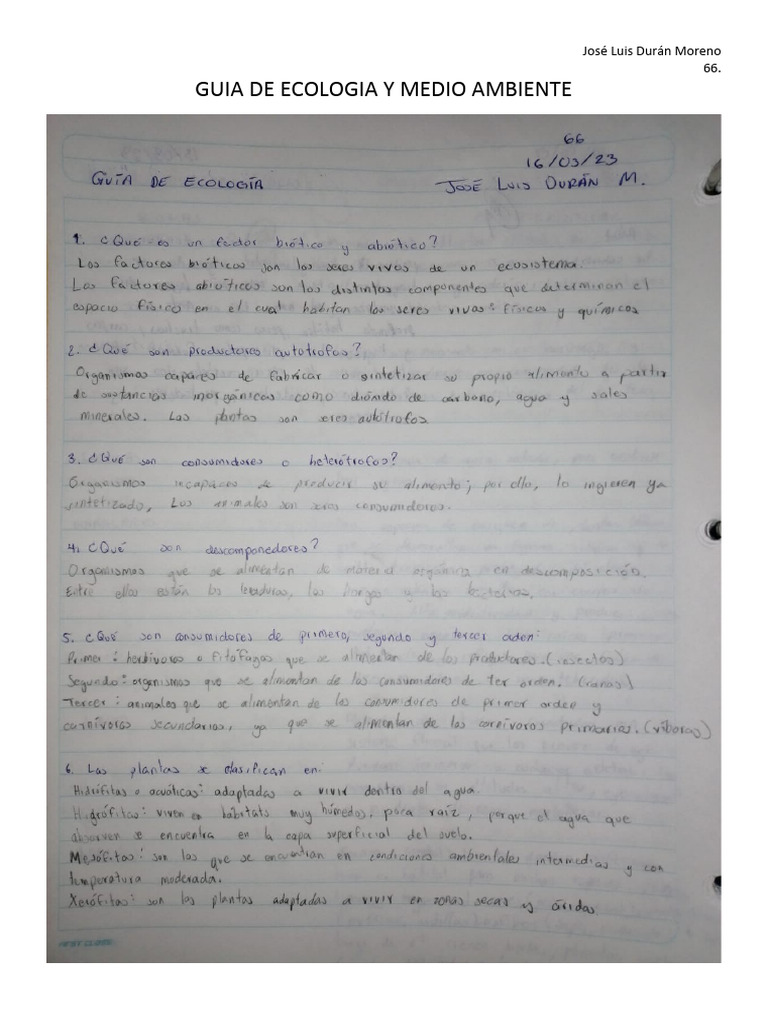 José Luis Durán Moreno
66.
GUIA DE ECOLOGIA Y MEDIO AMBIENTE
66
16/03/23
GUÍA DE ECOLOGÍA JOSÉ LUIS DURÁN M.
1. ¿Qué es un factor biótico y abiótico?
Los factores bióticos son los seres vivos de un ecosistema.
Los factores abióticos son los distintos componentes que determinan el
espacio físico en el cual habitan los seres vivos: físicos y químicos
2. ¿Qué son productores autótrofos?
Organismos capaces de fabricar o sintetizar su propio alimento a partir
de sustancias inorgánicas como dióxido de carbono, agua y sales
minerales. Las plantas son seres autótrofos
3. ¿Qué son consumidores o heterótrofos?
Organismos incapaces de producir su alimento; por ello, lo ingieren ya
sintetizado, Los animales son seres consumidores.
4. ¿Qué son descomponedores?
Organismos que se alimentan de materia orgánica en descomposición.
Entre ellos están las levaduras, los hongos y las bacterias.
5. ¿Qué son consumidores de primero, segundo y tercer orden:
Primer: herbívoros o fitófagos que se alimentan de los productores. (insectos)
Segundo: organismos que se alimentan de los consumidores de 1er orden. (ranas)
Tercer: animales que se alimentan de los consumidores de primer orden y
carnívoros secundarios, ya que se alimentan de los carnívoros primarios. (víboras)
6. Las plantas se clasifican en:
Hidrófitas o acuáticas: adaptadas a vivir dentro del agua.
Higrófitas: viven en hábitats muy húmedos, poca raíz, porque el agua que
absorven se encuentra en la capa superficial del suelo.
Mesófitas: son las que se encuentran en condiciones ambientales intermedias y con
temperatura moderada.
Xerófitas: son las plantas adaptadas a vivir en zonas secas y áridas.